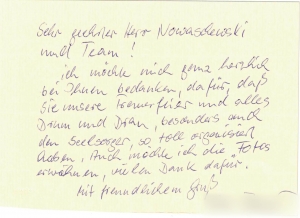 Sehr geehrter Herr Nowaschewski
und Team!
ich möchte mich ganz herzlich
bei Ihnen bedanken, dafür, daß
Sie unsere Trauerfeier und alles
Drum und Dran, besonders auch
den Seelsorger, so toll organisiert
haben. Auch möchte ich die Fotos
erwähnen, vielen Dank dafür.
Mit freundlichem Gruß